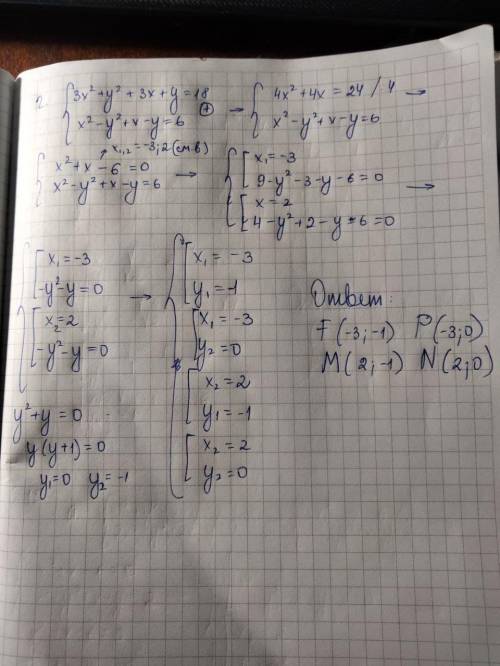 2. { 3x²+y²+3x+y=18
x²-y²+x-y=6 (+) → { 4x²+4x=24 / 4
x²-y²+x-y=6 →
x₁,₂=-3;2 (см.в)
{ x²+x-6=0
x²-y²+x-y=6 → { [ x₁=-3
9-y²-3-y-6=0
[ x=2
4-y²+2-y-6=0 →
{ [ x₁=-3
-y²-y=0
[ x₂=2
-y²-y=0 → { [ x₁=-3
y₁=-1
[ x₁=-3
y₂=0
[ x₂=2
y₁=-1
[ x₂=2
y₂=0
y²+y=0
y(y+1)=0
y₁=0 y₂=-1
Ответ:
F(-3;-1) P(-3;0)
M(2;-1) N(2;0)